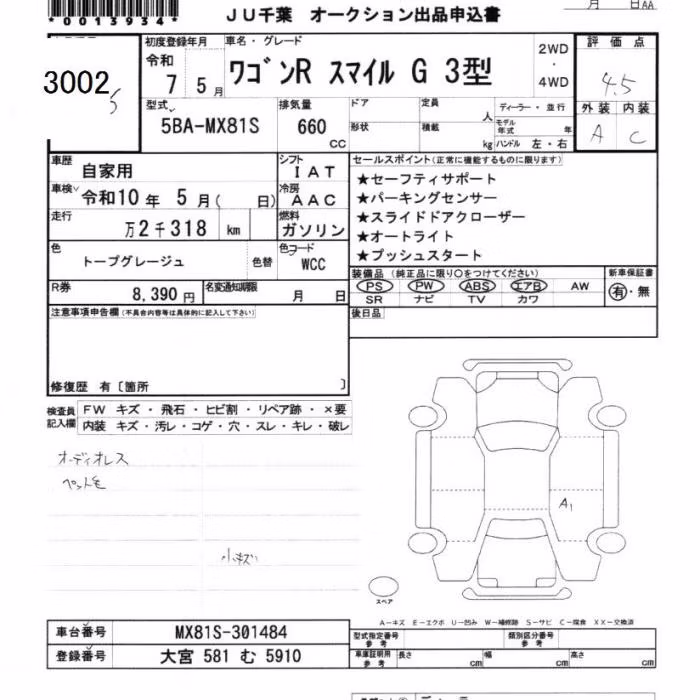 *0013934*
JU千葉 オークション出品申込書
月 日AA
3002
初度登録年月
令和
7 5月
車名・グレード
ワゴンR スマイル G 3型
2WD
・
4WD
評価点
4.5
外装 内装
A C
型式
5BA-MX81S
排気量
660
CC
ドア
形状
定員
人
積載
kg
ディーラー・並行
モデル年式 年
ハンドル 左・右
車歴
自家用
シフト
IAT
車検
令和10年 5月( 日)
冷房
AAC
走行
万2千318 km
燃料
ガソリン
色
トープグレージュ
色替
色コード
WCC
R券
8,390円
名変通知期限
月 日
セールスポイント(正常に機能するものに限ります)
★セーフティサポート
★パーキングセンサー
★スライドドアクローザー
★オートライト
★プッシュスタート
装備品 (純正品に限り〇をつけてください)
PS PW ABS エアB AW
SR ナビ TV カワ
新車保証書
有・無
後日品
注意事項申告欄(不具合内容等は具体的に記入して下さい)
修復歴 有〔箇所 〕
検査員記入欄
FW キズ・飛石・ヒビ割・リペア跡・×要
内装 キズ・汚レ・コゲ・穴・スレ・キレ・破レ
オーディオレス
ペット毛
小キズ
A1
スペア
A-キズ E-エクボ U-凹み W-補修跡 S-サビ C-腐食 XX-交換済
車台番号
MX81S-301484
登録番号
大宮 581 む 5910
型式指定番号
参考
類別区分番号
参考
車庫証明用
参考
長さ cm
幅 cm
高さ cm